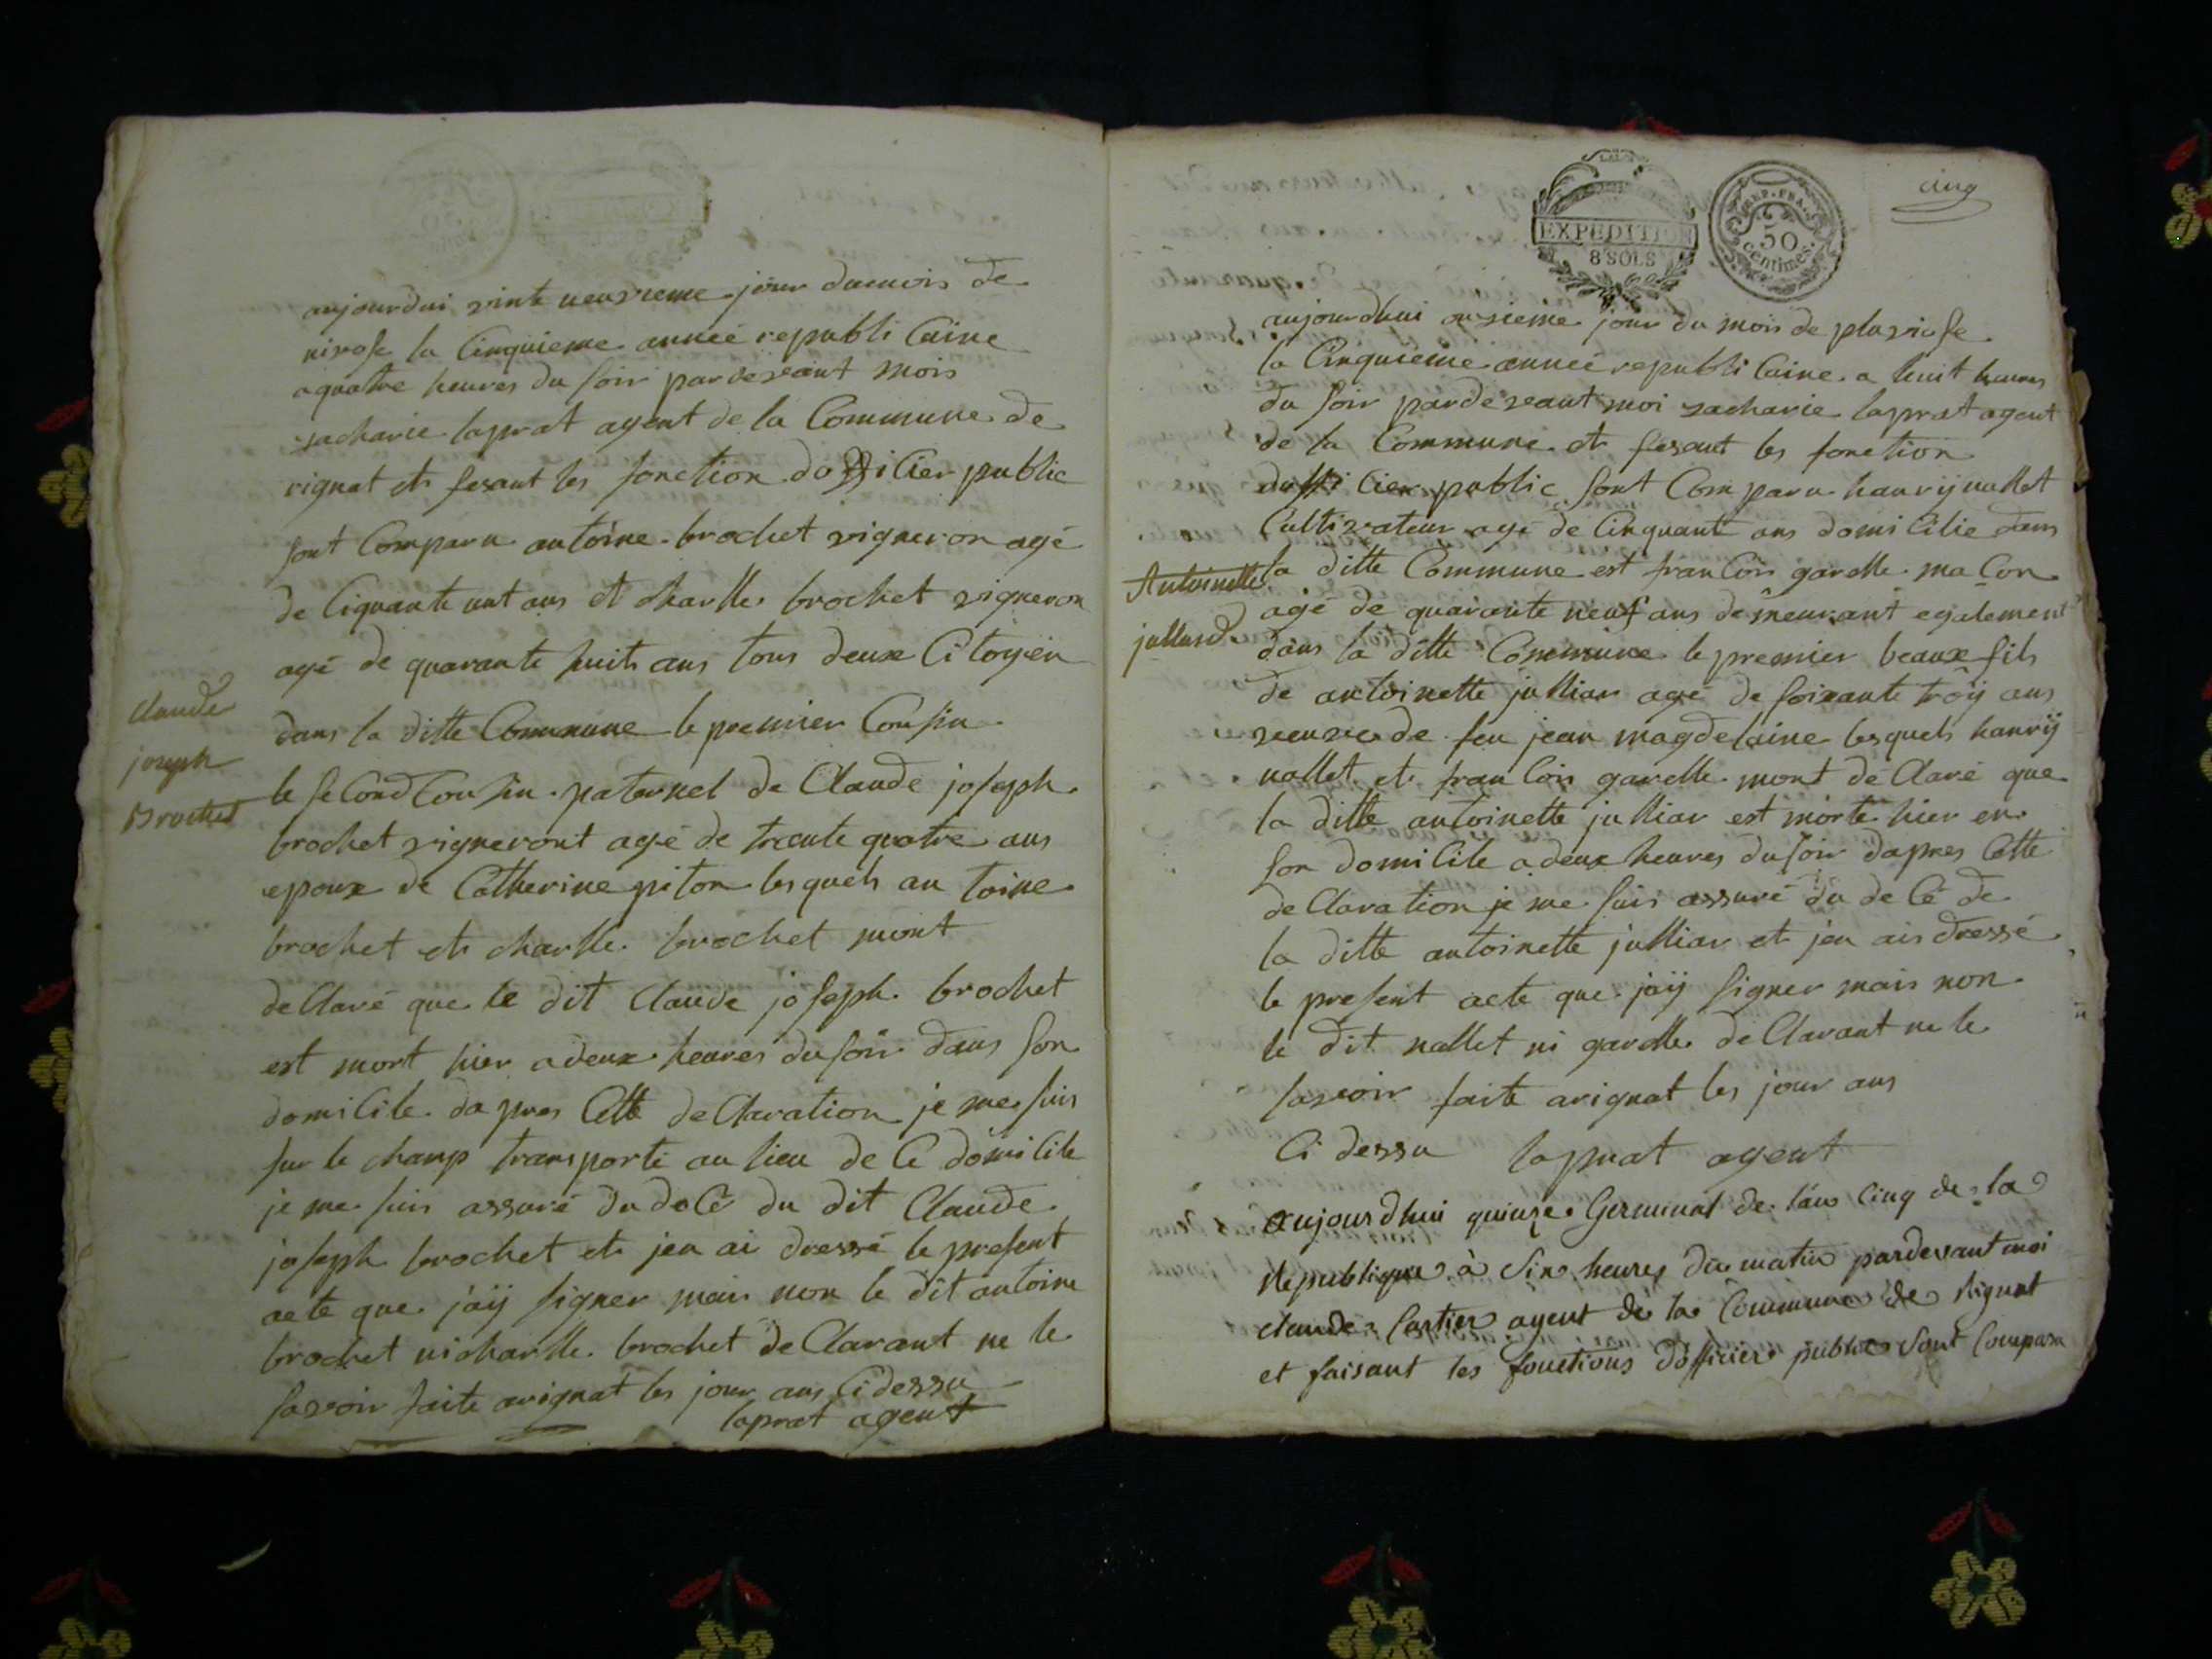 aujourdui vinte neuvieme jour dumois de
nivose la Cinquieme année republi Caine
a quatre heures du soir pardevant mois
zacharie laprat agent de la Commune de
rignat et fesant les fonction dofficier public
sont Comparu antoine brochet vigneron agé
de ciquante ans et charlle brochet vigneron
agé de quarante huit ans tous deux Citoyen
dans la ditte Commune le premier Cousin
le second Cousin paternel de Claude joseph
brochet vigneront agé de trante quatre ans
epoux de Catherine piton lesquels an toine
brochet et charlle brochet mont
declaré que le dit Claude joseph brochet
est mort hier a deux heures du soir dans son
domicile da pres Cette declaration je me suis
sur le champ transporté au lieu de Ce domicile
je me suis assuré du decé du dit Claude
joseph brochet et jen ai dressé le present
acte que jaÿ signer mais non le dit antoine
brochet ni charlle brochet declarant ne le
savoir faite arignat les jour ans Ci dessu
laprat agent
claude
joseph
Brochet
EXPEDITION
8 SOLS
REP. FRA.
50
centimes.
cinq
aujourdhui onsieme jour du mois de pluviose
la Cinquieme année republi Caine a huit heures
du soir pardevant moi zacharie laprat agent
de la Commune et fesant les fonction
dufficier public sont Comparu hanrÿ nallet
Cultivateur agé de Cinquant ans domicilie dans
la ditte Commune est francois garelle maçon
agé de quarante neuf ans demeurant egalement
dans la ditte Commune le premier beaux fils
de antoinette julliar agé de soixante troÿ ans
veuve de feu jean magdelaine lesquels hanrÿ
nallet et francois garelle mont declaré que
la ditte antoinette julliar est morte hier en
son domicile a deux heures du soir dapres Cette
declaration je me suis assuré du decé de
la ditte antoinette julliar et jen ais dressé
le present acte que jaÿ signer mais non
le dit nallet ni garelle declarant ne le
savoir faite arignat les jour ans
Ci dessu laprat agent
Antoinette
jullard
aujourdhui quinze Germinal de l'an cinq de la
Republique à Six heures du matin pardevant moi
claude Cartier agent de la Commune de Rignat
et faisant les fonctions dofficier public Sont Comparu